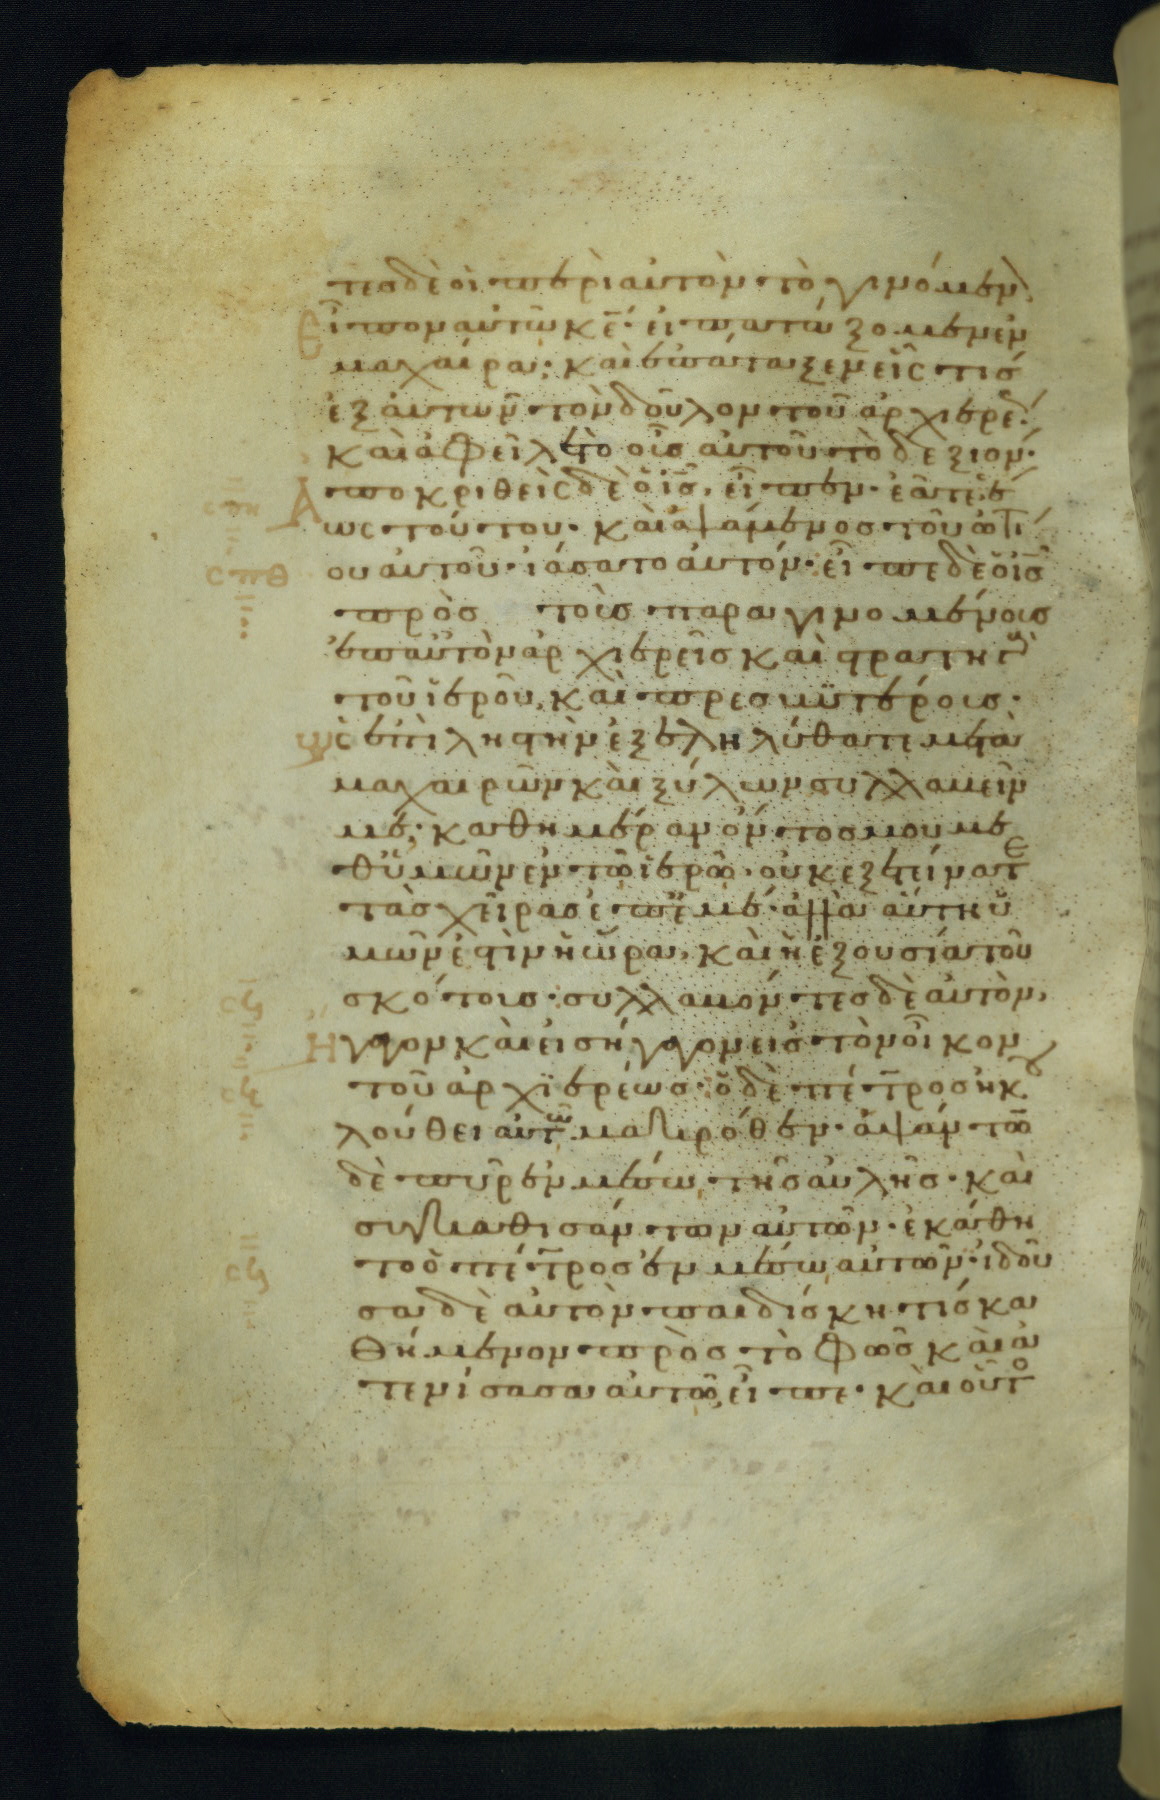 τες δὲ οἱ περὶ αὐτὸν τὸ γινόμεν
Εἶπον αὐτῶ κε̅· εἰ πατάξομεν ἐν
μαχαίρα; καὶ ἐπάταξεν εἷς τίς
ἐξ αὐτῶν τὸν δοῦλον τοῦ ἀρχιερέ·
καὶ ἀφεῖλε τὸ οὖς αὐτοῦ τὸ δεξιόν·
Ἀποκριθεὶς δὲ ὁ ις̅, εἶπεν· ἐᾶτε ἕ
σπη
ως τούτου· καὶ ἁψάμενος τοῦ ὠτί
σπθ
ου αὐτοῦ· ἰάσατο αὐτόν· εἶπε δὲ ὁ ις̅
πρὸς τοὺς παραγινομένους
ἐπ αὐτὸν ἀρχιερεῖς καὶ στρατηγ
τοῦ ἱεροῦ, καὶ πρεσβυτέρους·
Ὡς ἐπὶ ληστὴν ἐξεληλύθατε μετὰ
μαχαιρῶν καὶ ξύλων συλλαβεῖν
με· καθημέραν ὄντος μου με
θ ὑμῶν ἐν τῶ ἱερῶ· οὐκ ἐξετείνατε
τὰς χεῖρας ἐπ ἐμέ· ἀλλ αὕτη ὑ
μῶν ἐστὶν ἡ ὥρα, καὶ ἡ ἐξουσία τοῦ
σκότους· συλλαβόντες δὲ αὐτὸν,
Ἤγαγον καὶ εἰσήγαγον εἰς τὸν οἶκον
τοῦ ἀρχιερέως· ὁ δὲ πέτρος ἠκ
λούθει αὐτῶ μακρόθεν· ἁψάντων
δὲ πῦρ ἐν μέσω τῆς αὐλῆς· καὶ
συγκαθισάντων αὐτῶν· ἐκάθη
το ὁ πέτρος ἐν μέσω αὐτῶν· ἰδοῦ
σα δὲ αὐτὸν παιδίσκη τίς κα
θήμενον πρὸς τὸ φῶς καὶ ἀ
τενίσασα αὐτῶ, εἶπε· καὶ οὗτο